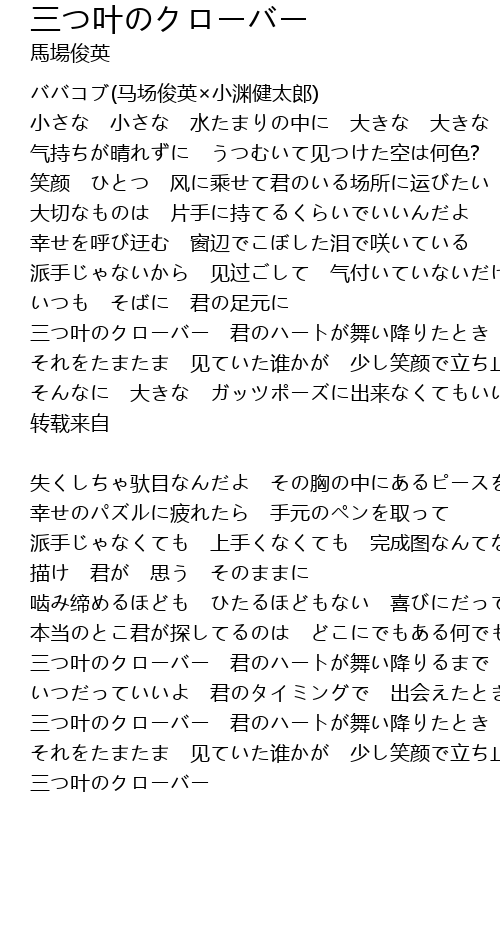 三つ叶のクローバー
馬場俊英
ババコブ(马场俊英×小渊健太郎)
小さな　小さな　水たまりの中に　大きな　大きな
气持ちが晴れずに　うつむいて见つけた空は何色?
笑颜　ひとつ　风に乘せて君のいる场所に运びたい
大切なものは　片手に持てるくらいでいいんだよ
幸せを呼び迂む　窗辺でこぼした泪で咲いている
派手じゃないから　见过ごして　气付いていないだけ
いつも　そばに　君の足元に
三つ叶のクローバー　君のハートが舞い降りたとき
それをたまたま　见ていた谁かが　少し笑颜で立ち止
そんなに　大きな　ガッツポーズに出来なくてもいい
转载来自
失くしちゃ驮目なんだよ　その胸の中にあるピースを
幸せのパズルに疲れたら　手元のペンを取って
派手じゃなくても　上手くなくても　完成图なんてな
描け　君が　思う　そのままに
啮み缔めるほども　ひたるほどもない　喜びにだって
本当のとこ君が探してるのは　どこにでもある何でも
三つ叶のクローバー　君のハートが舞い降りるまで
いつだっていいよ　君のタイミングで　出会えたとき
三つ叶のクローバー　君のハートが舞い降りたとき
それをたまたま　见ていた谁かが　少し笑颜で立ち止
三つ叶のクローバー